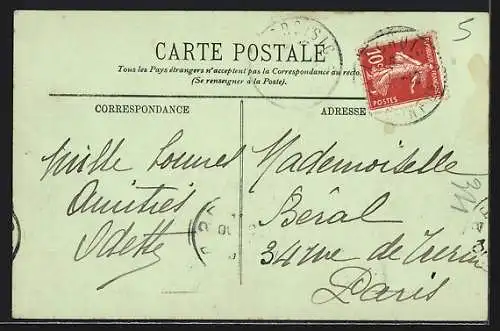 5
CARTE POSTALE
Tous les Pays étrangers n'acceptent pas la Correspondance au recto.
(Se renseigner à la Poste).
10c
POSTES
CORRESPONDANCE
ADRESSE
Mille bonnes
Amitiés
Odette
Mademoiselle
Béral
34 rue de
Paris